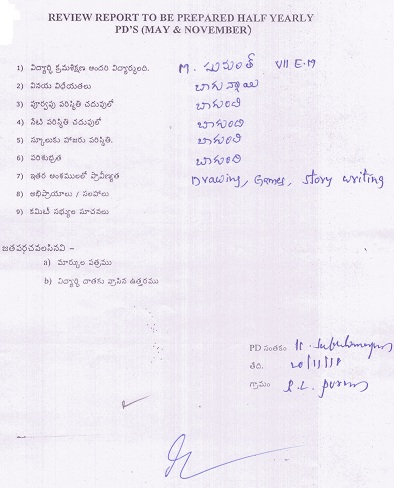 REVIEW REPORT TO BE PREPARED HALF YEARLY
PD'S (MAY & NOVEMBER)
1) విద్యార్థి క్రమశిక్షణ అందరి విద్యార్థులది. M. సుమంత్ VII E-19
2) వినయ విధేయతలు బాగున్నాయి
3) పూర్వపు పరిస్థితి చదువులో బాగుంది
4) నేటి పరిస్థితి చదువులో బాగుంది
5) స్కూలుకు హాజరు పరిస్థితి. బాగుంది
6) పరిశుభ్రత బాగుంది
7) ఇతర అంశములలో ప్రావీణ్యత Drawing, Games, Story writing
8) అభిప్రాయాలు / సలహాలు
9) కమిటీ సభ్యుల సూచనలు
జతపర్చవలసినవి –
a) మార్కుల పత్రము
b) విద్యార్థి దాతకు వ్రాసిన ఉత్తరము
PD సంతకం
తేది. 20/11/18
గ్రామం